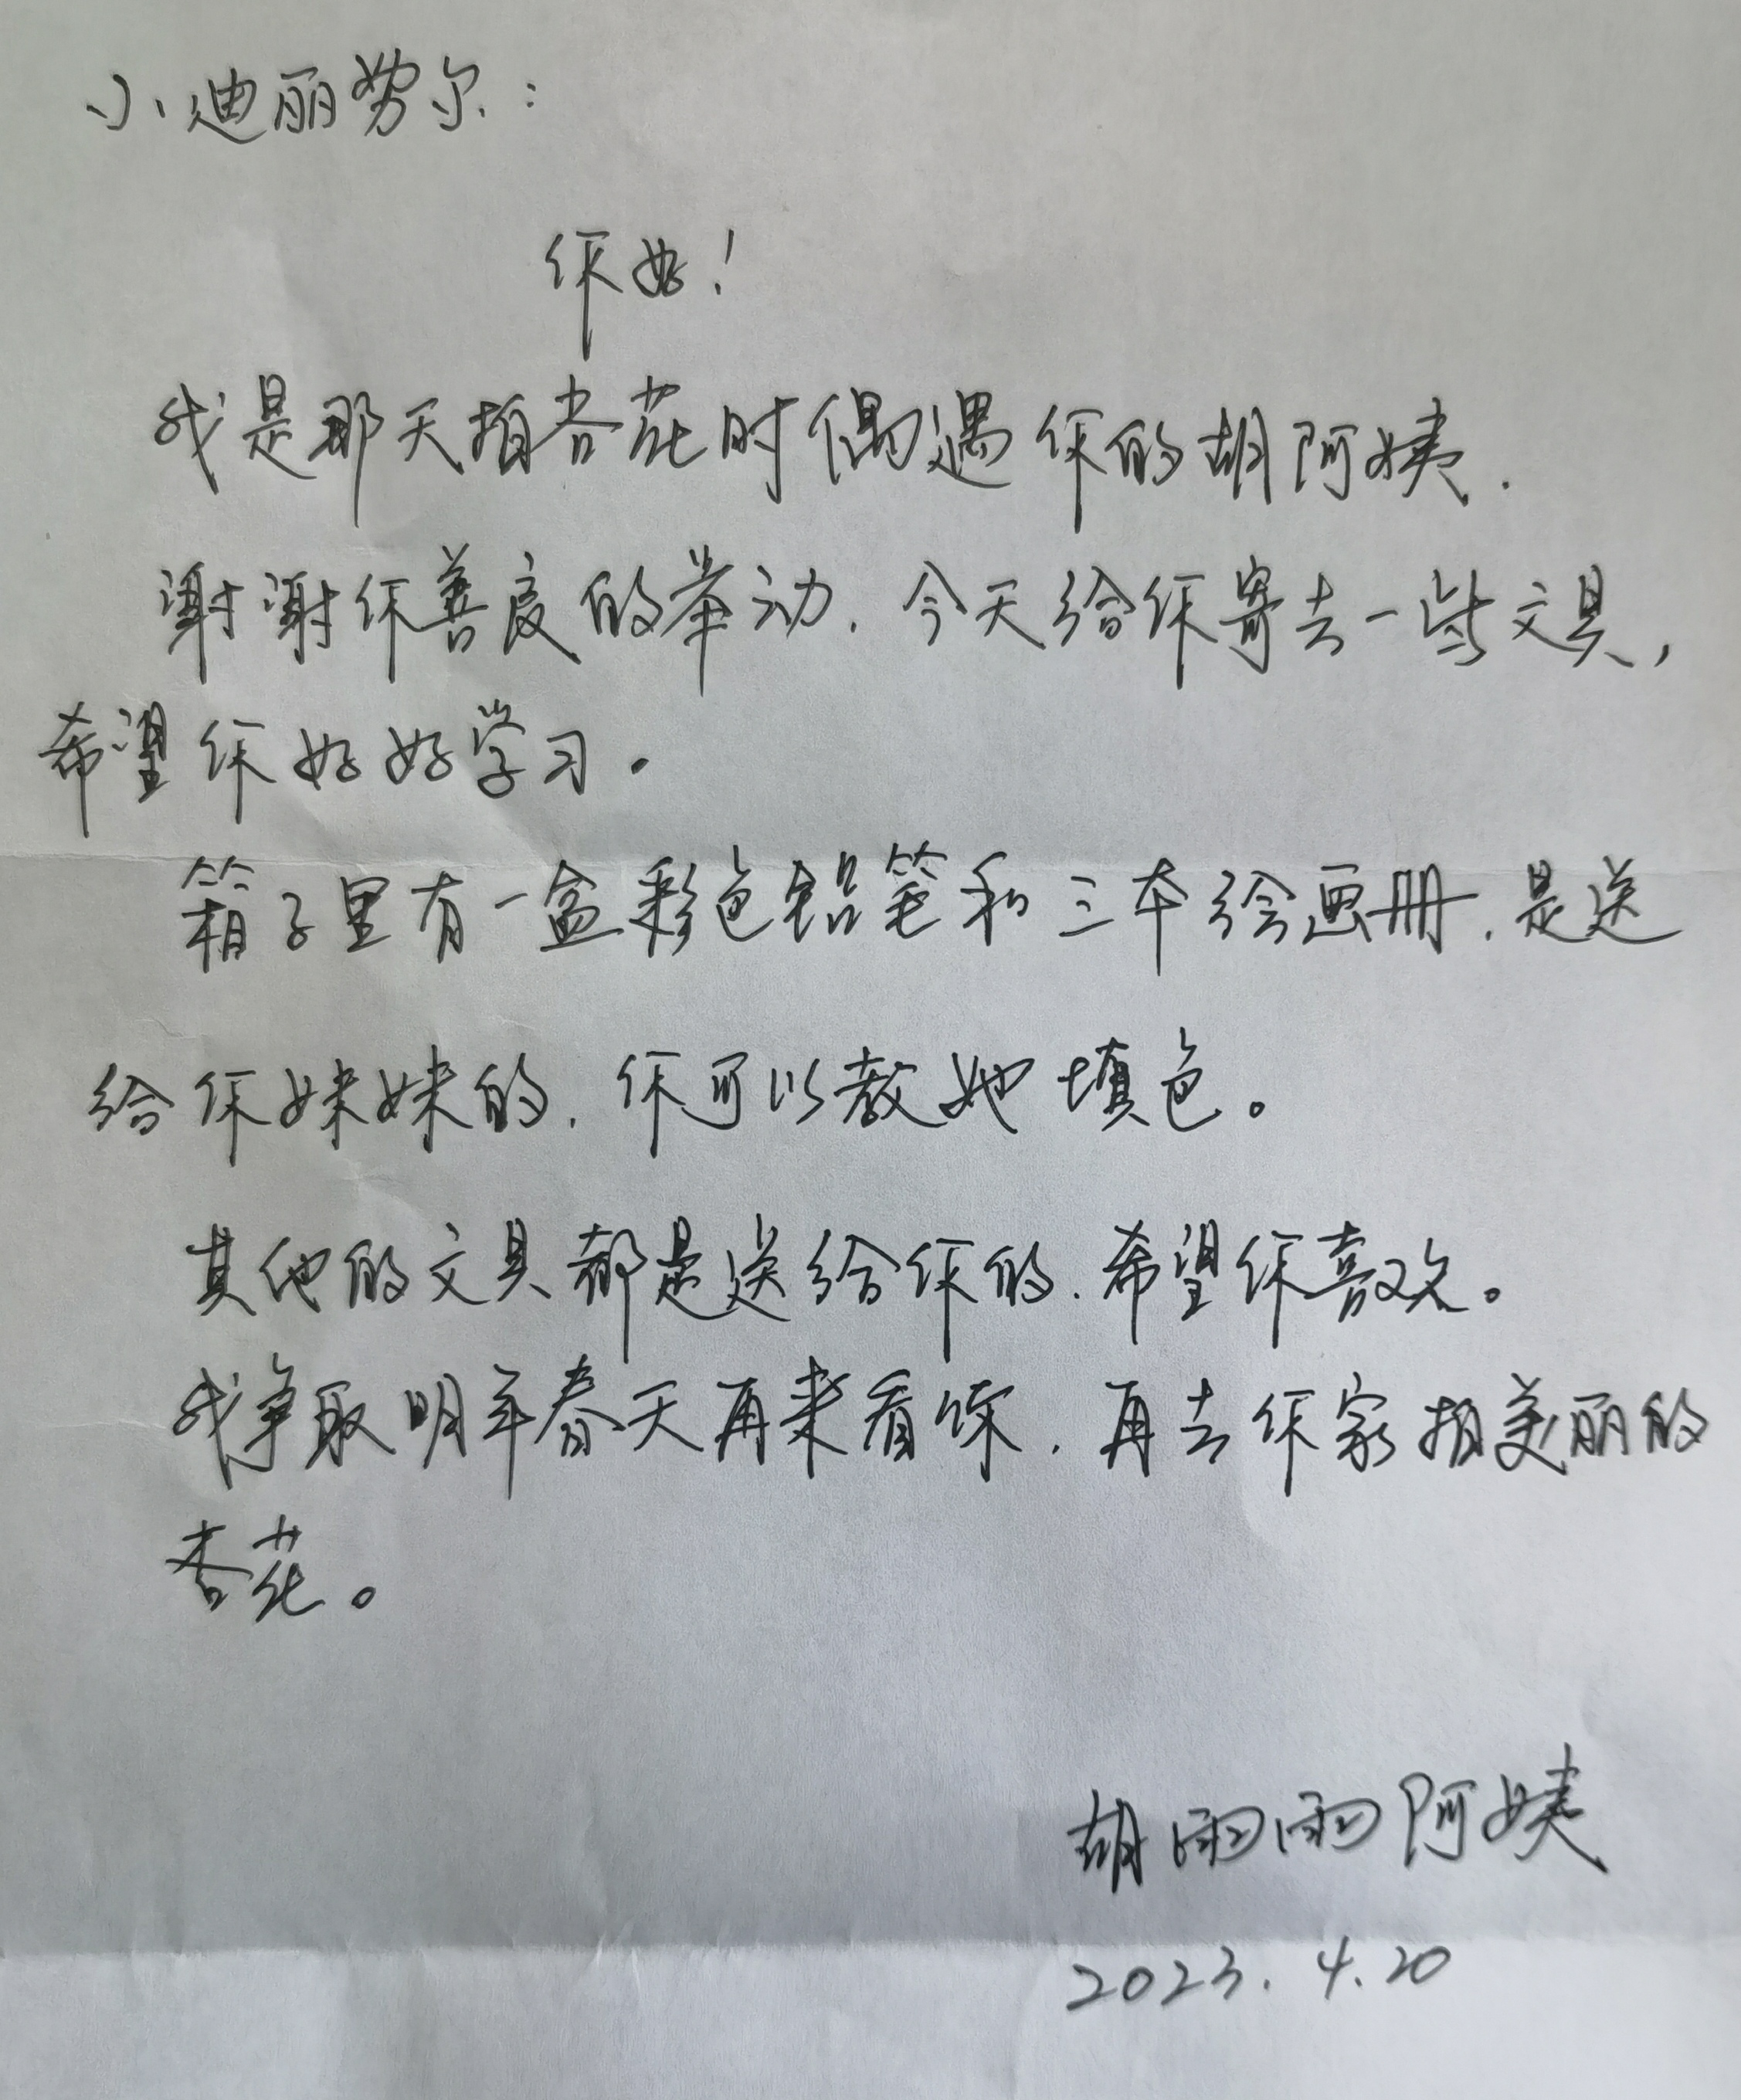 小迪丽努尔：
你好！
我是那天拍杏花时偶遇你的胡阿姨.
谢谢你善良的举动.今天给你寄去一些文具,
希望你好好学习.
箱子里有一盒彩色铅笔和三本绘画册.是送
给你妹妹的.你可以教她填色。
其他的文具都是送给你的.希望你喜欢。
我争取明年春天再来看你.再去你家拍美丽的
杏花。
胡雨雨阿姨
2023.4.20